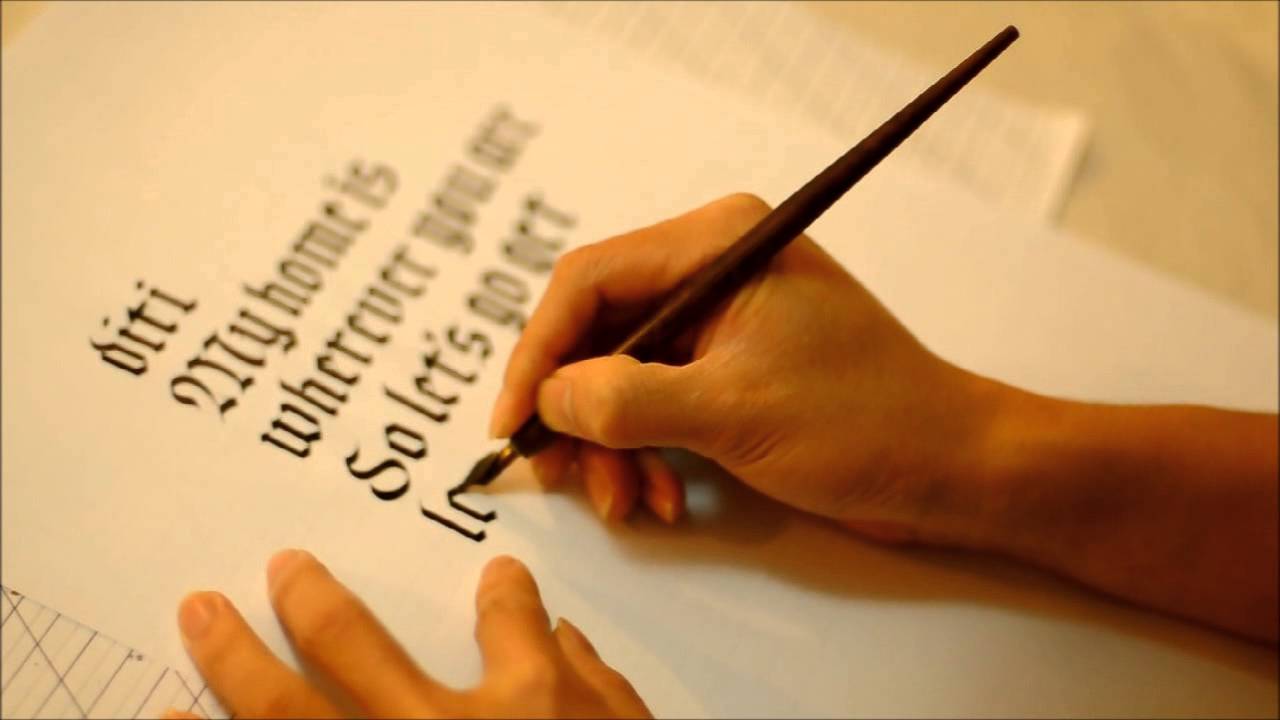 diti
My home is
wherever you are
So let's go get
le